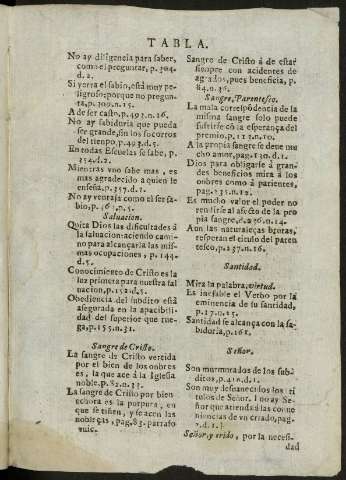 TABLA.
No ay diligencia para saber,
como el preguntar, p. 304.
d. 2.
Si yerra el sabio, està muy pe-
ligroso: porque no pregun-
ta, p. 309. n. 15.
A de ser casto, p. 493. n. 16.
No ay sabiduria que pueda
ser grande, sin los socorros
del tienpo, p. 493. d. 5.
En todas Escuelas se sabe, p.
354. d. 2.
Mientras vno sabe mas, es
mas agradecido a quien le
enseña, p. 357. d. 1.
No ay ventaja como el ser sa-
bio, p.
Saluacion.
Quita Dios las dificultades à
la saluacion: aciendo cami-
no para alcançarla las mis-
mas ocupaciones, p. 144.
d. 5.
Conocimiento de Cristo es la
luz primera para nuestra sal
uacion, p. 152. d. 5.
Obediencia del subdito està
asegurada en la apacibili-
dad del superior que rue-
ga, p. 155. n. 31.
Sangre de Cristo.
La sangre de Cristo vertida
por el bien de los onbres
es, la que ace à la Iglesia
noble. p. 82. n. 33.
La sangre de Cristo por bien
echora es la purpura, en
que se tiñen, y se acen las
nobleças, pag. 83. parrafo
vnic.
Sangre de Cristo à de estar
sienpre con acidentes de
agrados, pues beneficia, p.
84. n. 36.
Sangre, Parentesco.
La mala correspõdencia de la
misma sangre solo puede
sufrirse cõ la esperança del
premio, p. 113. n. 10.
A la propia sangre se deve mu
cho amor, pag. 130. d. 1.
Dios para obligarse à gran-
des beneficios mira à los
onbres como à parientes,
pag. 135. n. 12.
Es mucho valor el poder no
rendirse al afecto de la pro
pia sangre, d. 236. n. 14.
Aun las naturaleças brutas,
respetan el titulo del paren
tesco, p. 237. n. 16.
Santidad.
Mira la palabra, virtud.
Es inefable el Verbo por la
eminencia de su santidad,
p. 17. n. 15.
Santidad se alcança con la sa-
biduria, p. 161.
Señor.
Son murmurados de los sub-
ditos, p. 410. d. 1.
Son muy desuanecidos los ti
tulos de Señor. I no ay Se-
ñor que atienda à las conue
niencias de vn criado, pag.
d. 1.
Señor, y crido, por la necesi-
dad